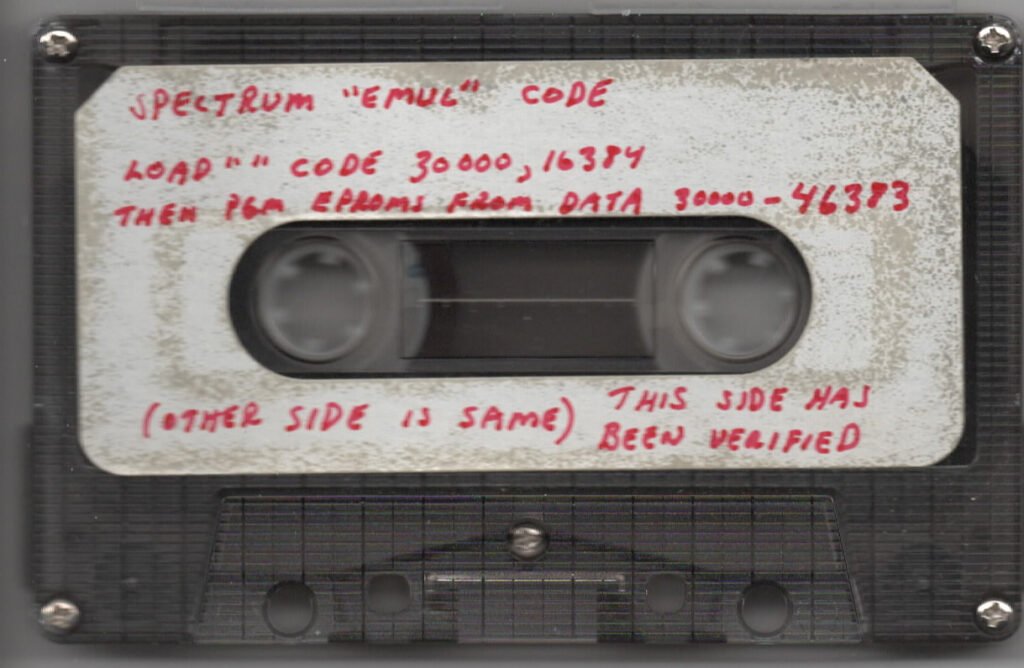 SPECTRUM "EMUL" CODE
LOAD "" CODE 30000, 16384
THEN PGM EPROMS FROM DATA 30000 - 46383
(OTHER SIDE IS SAME)
THIS SIDE HAS
BEEN VERIFIED